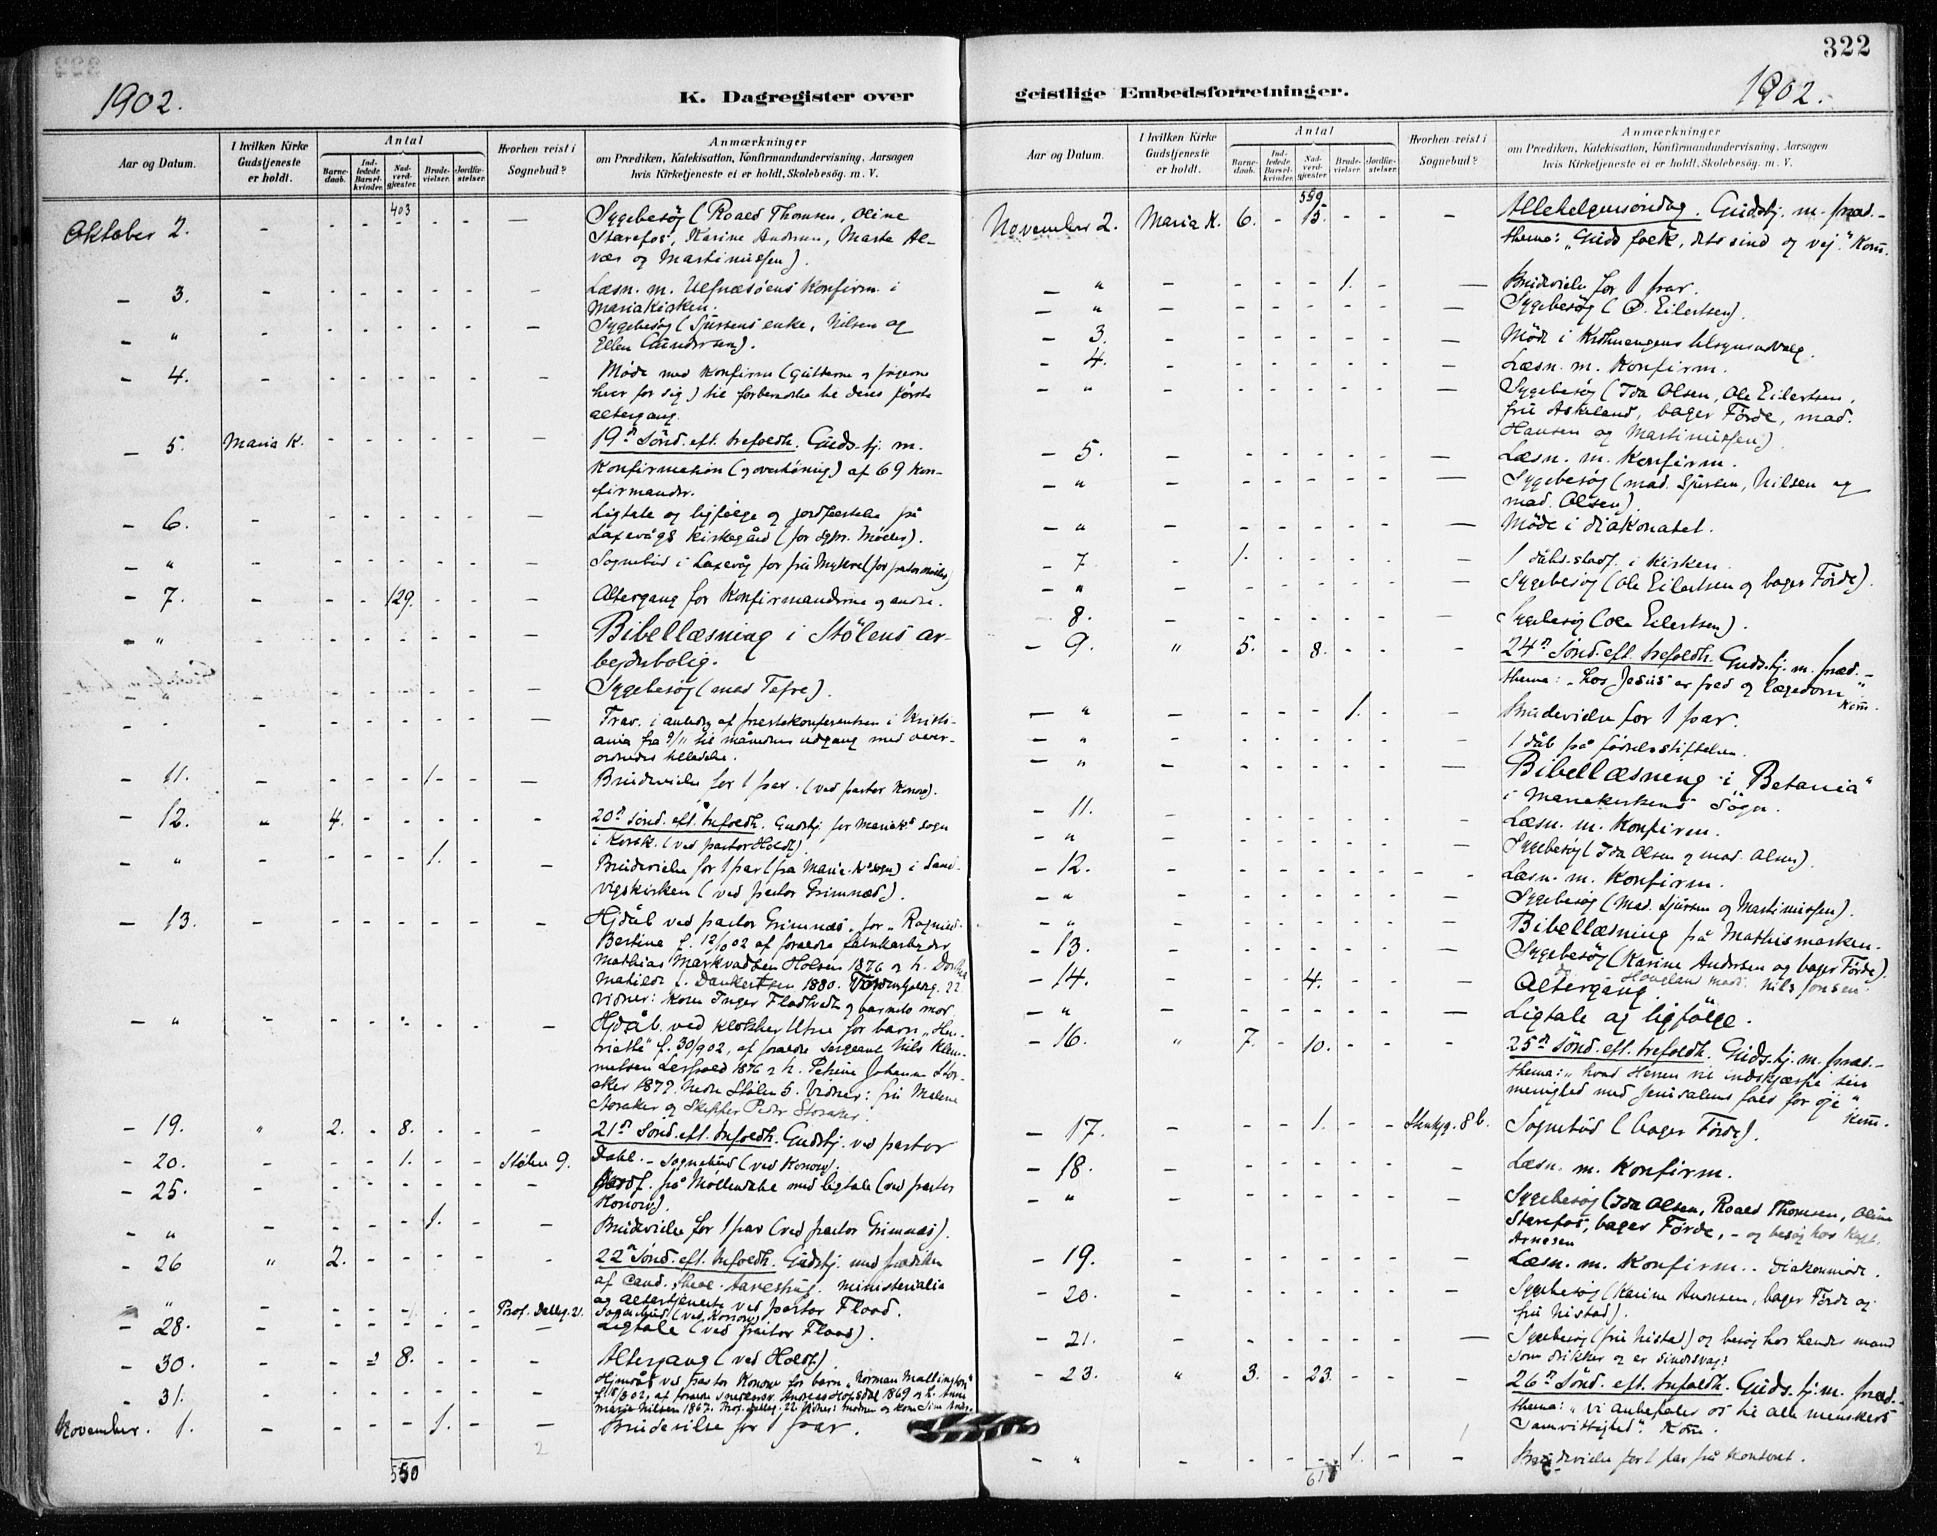 322
1902.
K. Dagregister over
geistlige Embedsforretninger.
1902.
Aar og Datum.
I hvilken Kirke Gudstjeneste er holdt.
Antal
Barnedaab.
Indledede Barselkvinder.
Nadverdgjæster.
Brudevielser.
Jordfæstelser.
Hvorhen reist i Sognebud?
Anmærkninger
om Prædiken, Katekisation, Konfirmandundervisning, Aarsagen
hvis Kirketjeneste ei er holdt, Skolebesøg. m. V.
403
Oktober 2. - - - - - - —
Sygebesøg (Roald Thomsen, Oline
Starefos, Karine Andersen, Marta Al-
vær og Martinussen).
— 3. Læsn. m. Ulfnæsöens Konfirm. i
Mariakirken.
— " Sygebesøg (Sjursens enke, Nilsen og
Ellen Gundersen).
— 4. Møde med Konfirm. (gutterne og pigerne
hver for sig) til forberedelse til deres første
altergang.
— 5. Maria K. 19de Sönd. eft. trefoldh. Guds.tj. m.
Konfirmation (og overhöring) af 69 Kon-
firmander.
— 6. Ligtale og ligfølge og jordfæstelse på
Laxevågs Kirkegård
— " Sognebud i Laxevåg for fru
— 7. 129. Altergang for Konfirmanderne og andre.
— " Bibellæsning i Stölens ar-
bejderbolig.
— " Sygebesøg (mad Tefre).
i anledn. af præstekonferentsen i Kristi-
ania fra 9/11 til månedens udgang med over-
ordnedes tilladelse.
— 11. 1. Brudevielse for 1 par. (ved pastor Konow).
— 12. " 4. 20de sönd. eft. trefoldh. Gudstj. for Mariak.s sogn
i Korsk. (ved pastor Holdt).
— " 1. Brudevielse for 1 par (fra Maria-K.s sogn) i Sand-
vigskirken (ved pastor Grimnæs).
— 13. Hjdåb ved pastor Grimnæs, for "Ragnild
Bertine f. 12/ 02 af forældre fabrikarbejder
Mathias Markvadsen Holsen 1876 og h. Dorthea
Matilde f. Dankertsen 1880.
vidner: Kone Inger Fladhvedt og barnets mor
— " Hjdåb. ved klokker Utne for barn "Hen-
riette" f. 30/ 902, af forældre sergeant Nils Klem-
metsen 1876 og h. Petrine Johanne Stor-
aker 1877. Nedre Stölen 5. Vidner: fru Malene
Storaker og Skipper Peder Storaker.
— 19. " 2. 8. 21de Sönd. eft. trefoldh. Gudstj. ved pastor
Dahl.
— 20. 1. Stölen 9. — Sognebud (ved Konow).
— 25. Jordf. på Møllendahl med ligtale (ved pastor
Konow).
— " 1. Brudevielse for 1 par (ved pastor Grimnæs).
— 26 " 2. 22de Sönd. eft. trefoldh. Gudstj. med prædiken
af Cand. theol. ministerialia
og altertjeneste ved pastor Flood.
— " Prof. Dallg. 21. Sognebud (ved Konow)
— 28. Ligtale (ved pastor Flood).
— 30. 8. Altergang (ved Holdt).
— 31. Hjmdåb ved pastor Konow for barn "Norman Mallington"
af forældre Andreas 1869 og h. Anna
Marie Nilsen 1867.
November. 1. 1. Brudevielse for 1 par.
2
550
Aar og Datum.
I hvilken Kirke Gudstjeneste er holdt.
Antal
Barnedaab.
Indledede Barselkvinder.
Nadverdgjæster.
Brudevielser.
Jordfæstelser.
Hvorhen reist i Sognebud?
Anmærkninger
om Prædiken, Katekisation, Konfirmandundervisning, Aarsagen
hvis Kirketjeneste ei er holdt. Skolebesøg. m. V.
November 2. Maria K. 6. 15. Allehelgensöndag. Gudstj. m. præd.-
thema: "Guds folk, dets sind og vej." Kom.
— " 1. Brudevielse for 1 par.
— " Sygebesøg (O. Eilertsen).
— 3. Møde i tilsynsudvalg.
— 4. Læsn. m. Konfirm.
— " Sygebesøg (Ida Olsen, Ole Eilertsen,
fru Askeland, bager Förde, mad.
Hansen og Martinussen).
— 5. Læsn. m. Konfirm.
— " Sygebesøg (mad. Sjursen, Nilsen og
mad. Olsen).
— " Møde i diakonatet.
— 7 1. 1 dåbs.stadf. i kirken.
— " Sygebesøg (Ole Eilertsen og bager Förde).
8. Sygebesög (Ole Eilertsen).
— 9. " 5. 8. 24de Sönd. eft. trefoldh. Guds.tj. m. præd.-
thema: "Hos Jesus er fred og lægedom"
Kom.
— " 1. Brudevielse for 1 par.
— " 1 dåb på fødselsstiftelsen.
— " Bibellæsning i "Betania"
i Mariakirkens Sogn.
— 11. Læsn. m. Konfirm.
— " Sygebesøg (Ida Olsen og mad. Olsen).
— 12. Læsn. m. Konfirm.
— " Sygebesøg (Mad. Sjursen og Martinussen).
— " Bibellæsning på Mathismarken.
— 13. Sygebesøg (Karine Andersen og bager Förde).
— 14. 4. Altergang.
— " Ligtale og ligfölge.
— 16. " 7. 10. 25de Sönd. eft. trefoldh. Guds.tj. m. præd.-
thema: "hvad Herren vil indskjærpe sin
menighed med Jerusalems fald for øje"
Kom.
— 17. 1. 8 b. Sognebud (bager Förde).
— 18. Læsn. m. Konfirm.
— " Sygebesøg (Ida Olsen, Roald Thomsen, Oline
Starefos, bager Förde, - og besøg hos Kapt.
Arnesen
— 19. Læsn. m. Konfirm. - Diakonmøde.
— 20. Sygebesøg (Karine Andersen, bager Förde og
fru Nistad).
— 21. Sygebesøg (fru Nistad) og besøg hos hendes mand
som drikker og er sindssvag!
— 23. " 3. 23. 26de Sönd. eft. trefoldh. Guds.tj. m. præd.-
thema: "Vi anbefaler os til alle menneskers
Samvittighed". Kom.
— " 1. Brudevielse for 1 par på Kontoret.